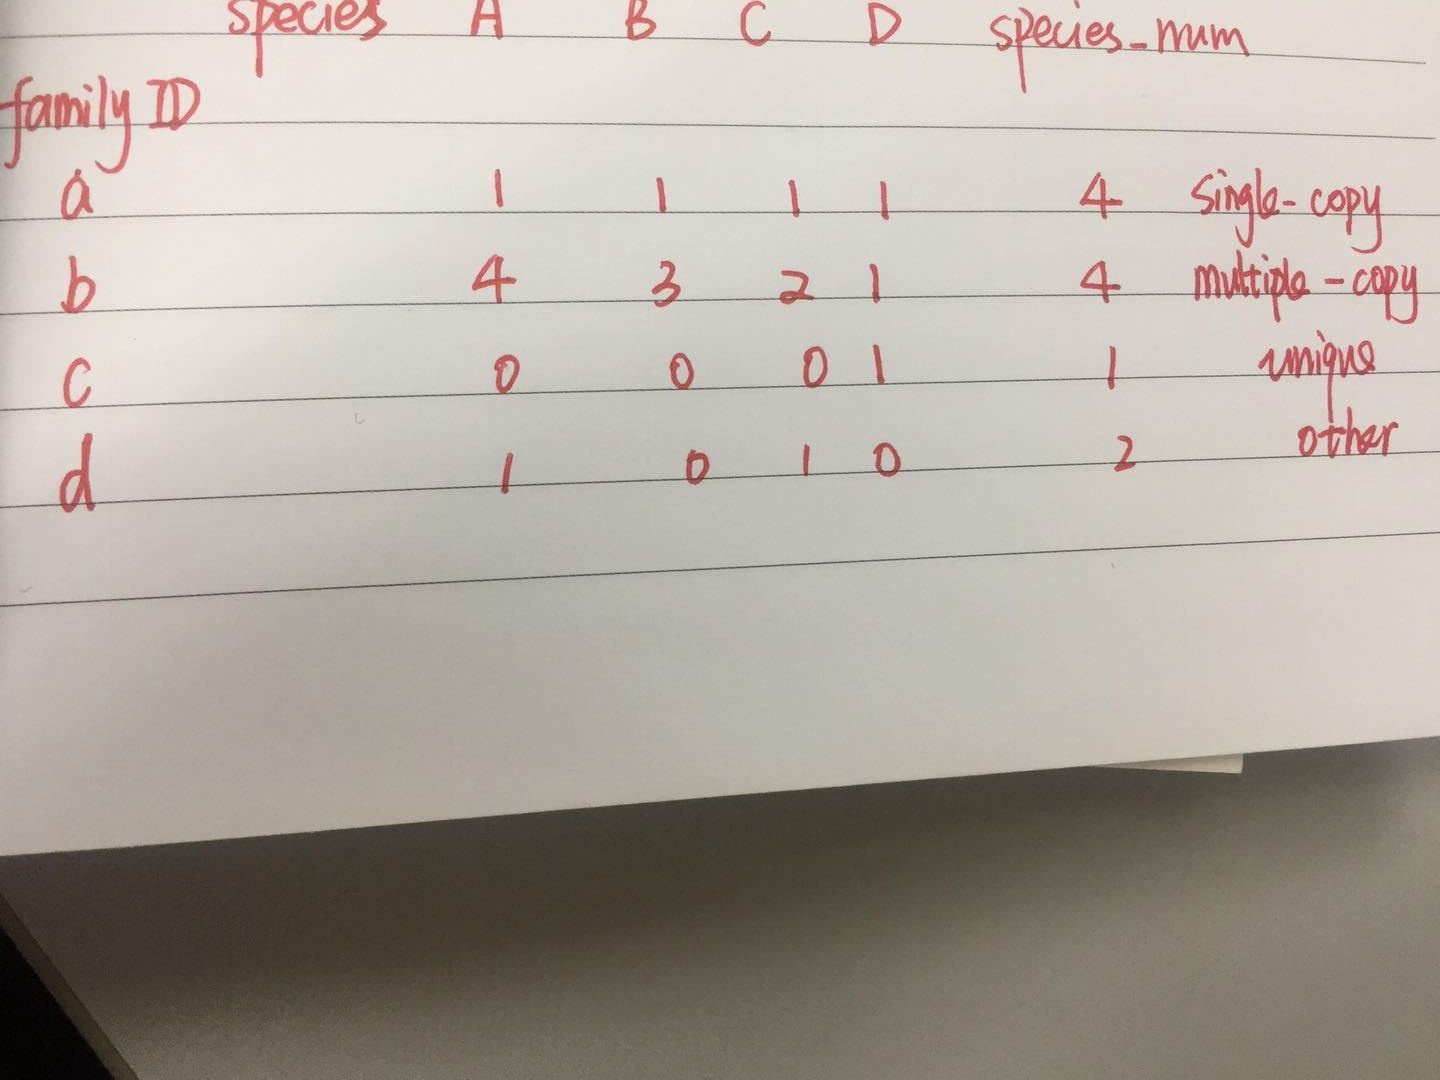 species A B C D species_num
family ID
a 1 1 1 1 4 single-copy
b 4 3 2 1 4 multiple-copy
c 0 0 0 1 1 unique
d 1 0 1 0 2 other